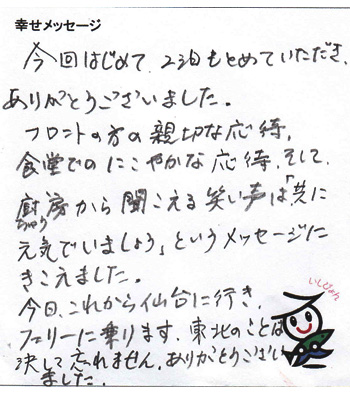 幸せメッセージ
今回はじめて、2泊もとめていただき、
ありがとうございました。
フロントの方の親切な応待、
食堂でのにこやかな応待、そして、
厨房から聞こえる笑い声は「共に
ちゅう
元気でいましょう」というメッセージに
きこえました。
今日、これから仙台に行き、
フェリーに乗ります。東北のことは
決して忘れません。ありがとうござい
ました。